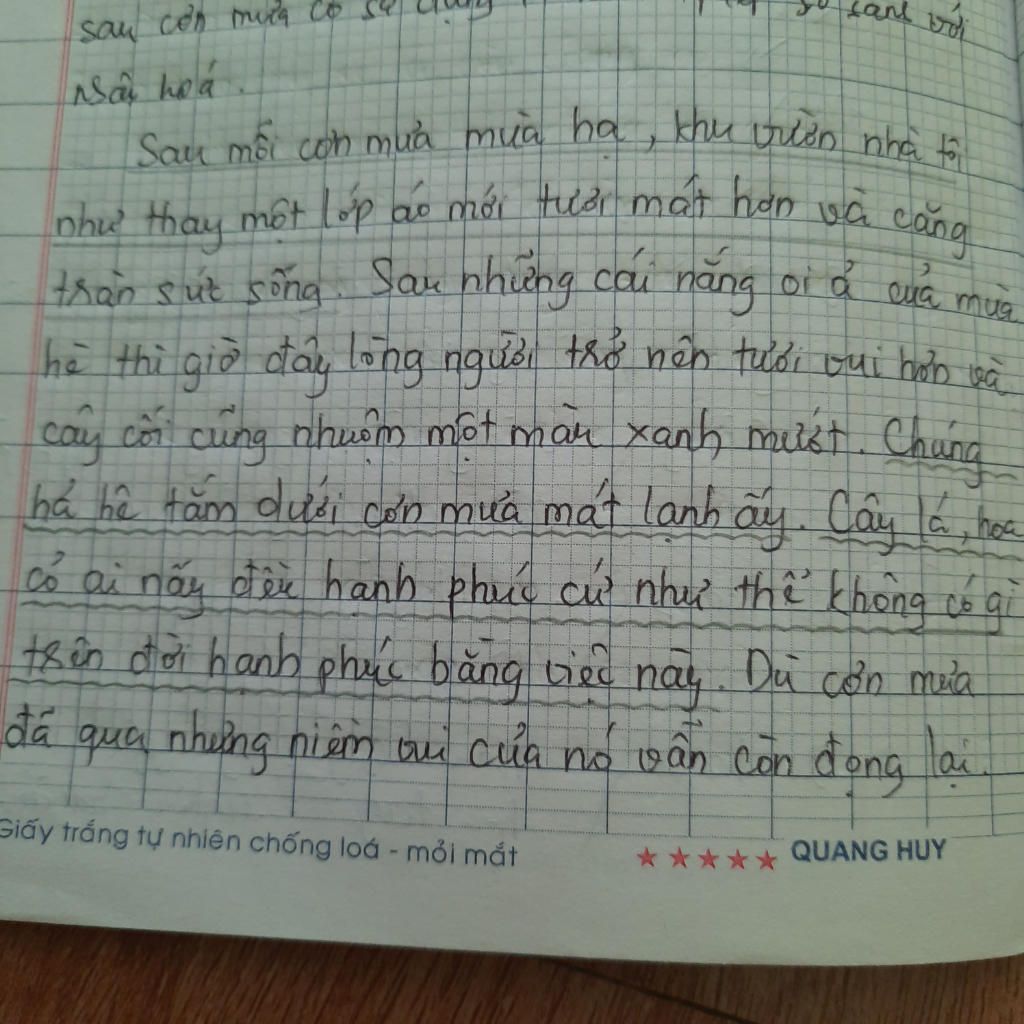 sau cơn mưa có sử dụng so sánh với
nhân hoá.
Sau mỗi cơn mưa mùa hạ, khu vườn nhà tôi
như thay một lớp áo mới tươi mát hơn và căng
tràn sức sống. Sau những cái nắng oi ả của mùa
hè thì giờ đây lòng người trở nên tươi vui hơn và
cây cối cũng nhuộm một màu xanh mướt. Chúng
hả hê tắm dưới cơn mưa mát lạnh ấy. Cây lá, hoa
cỏ ai nấy đều hạnh phúc cứ như thể không có gì
trên đời hạnh phúc bằng việc này. Dù cơn mưa
đã qua nhưng niềm vui của nó vẫn còn đọng lại.
Giấy trắng tự nhiên chống loá - mỏi mắt
★★★★★ QUANG HUY